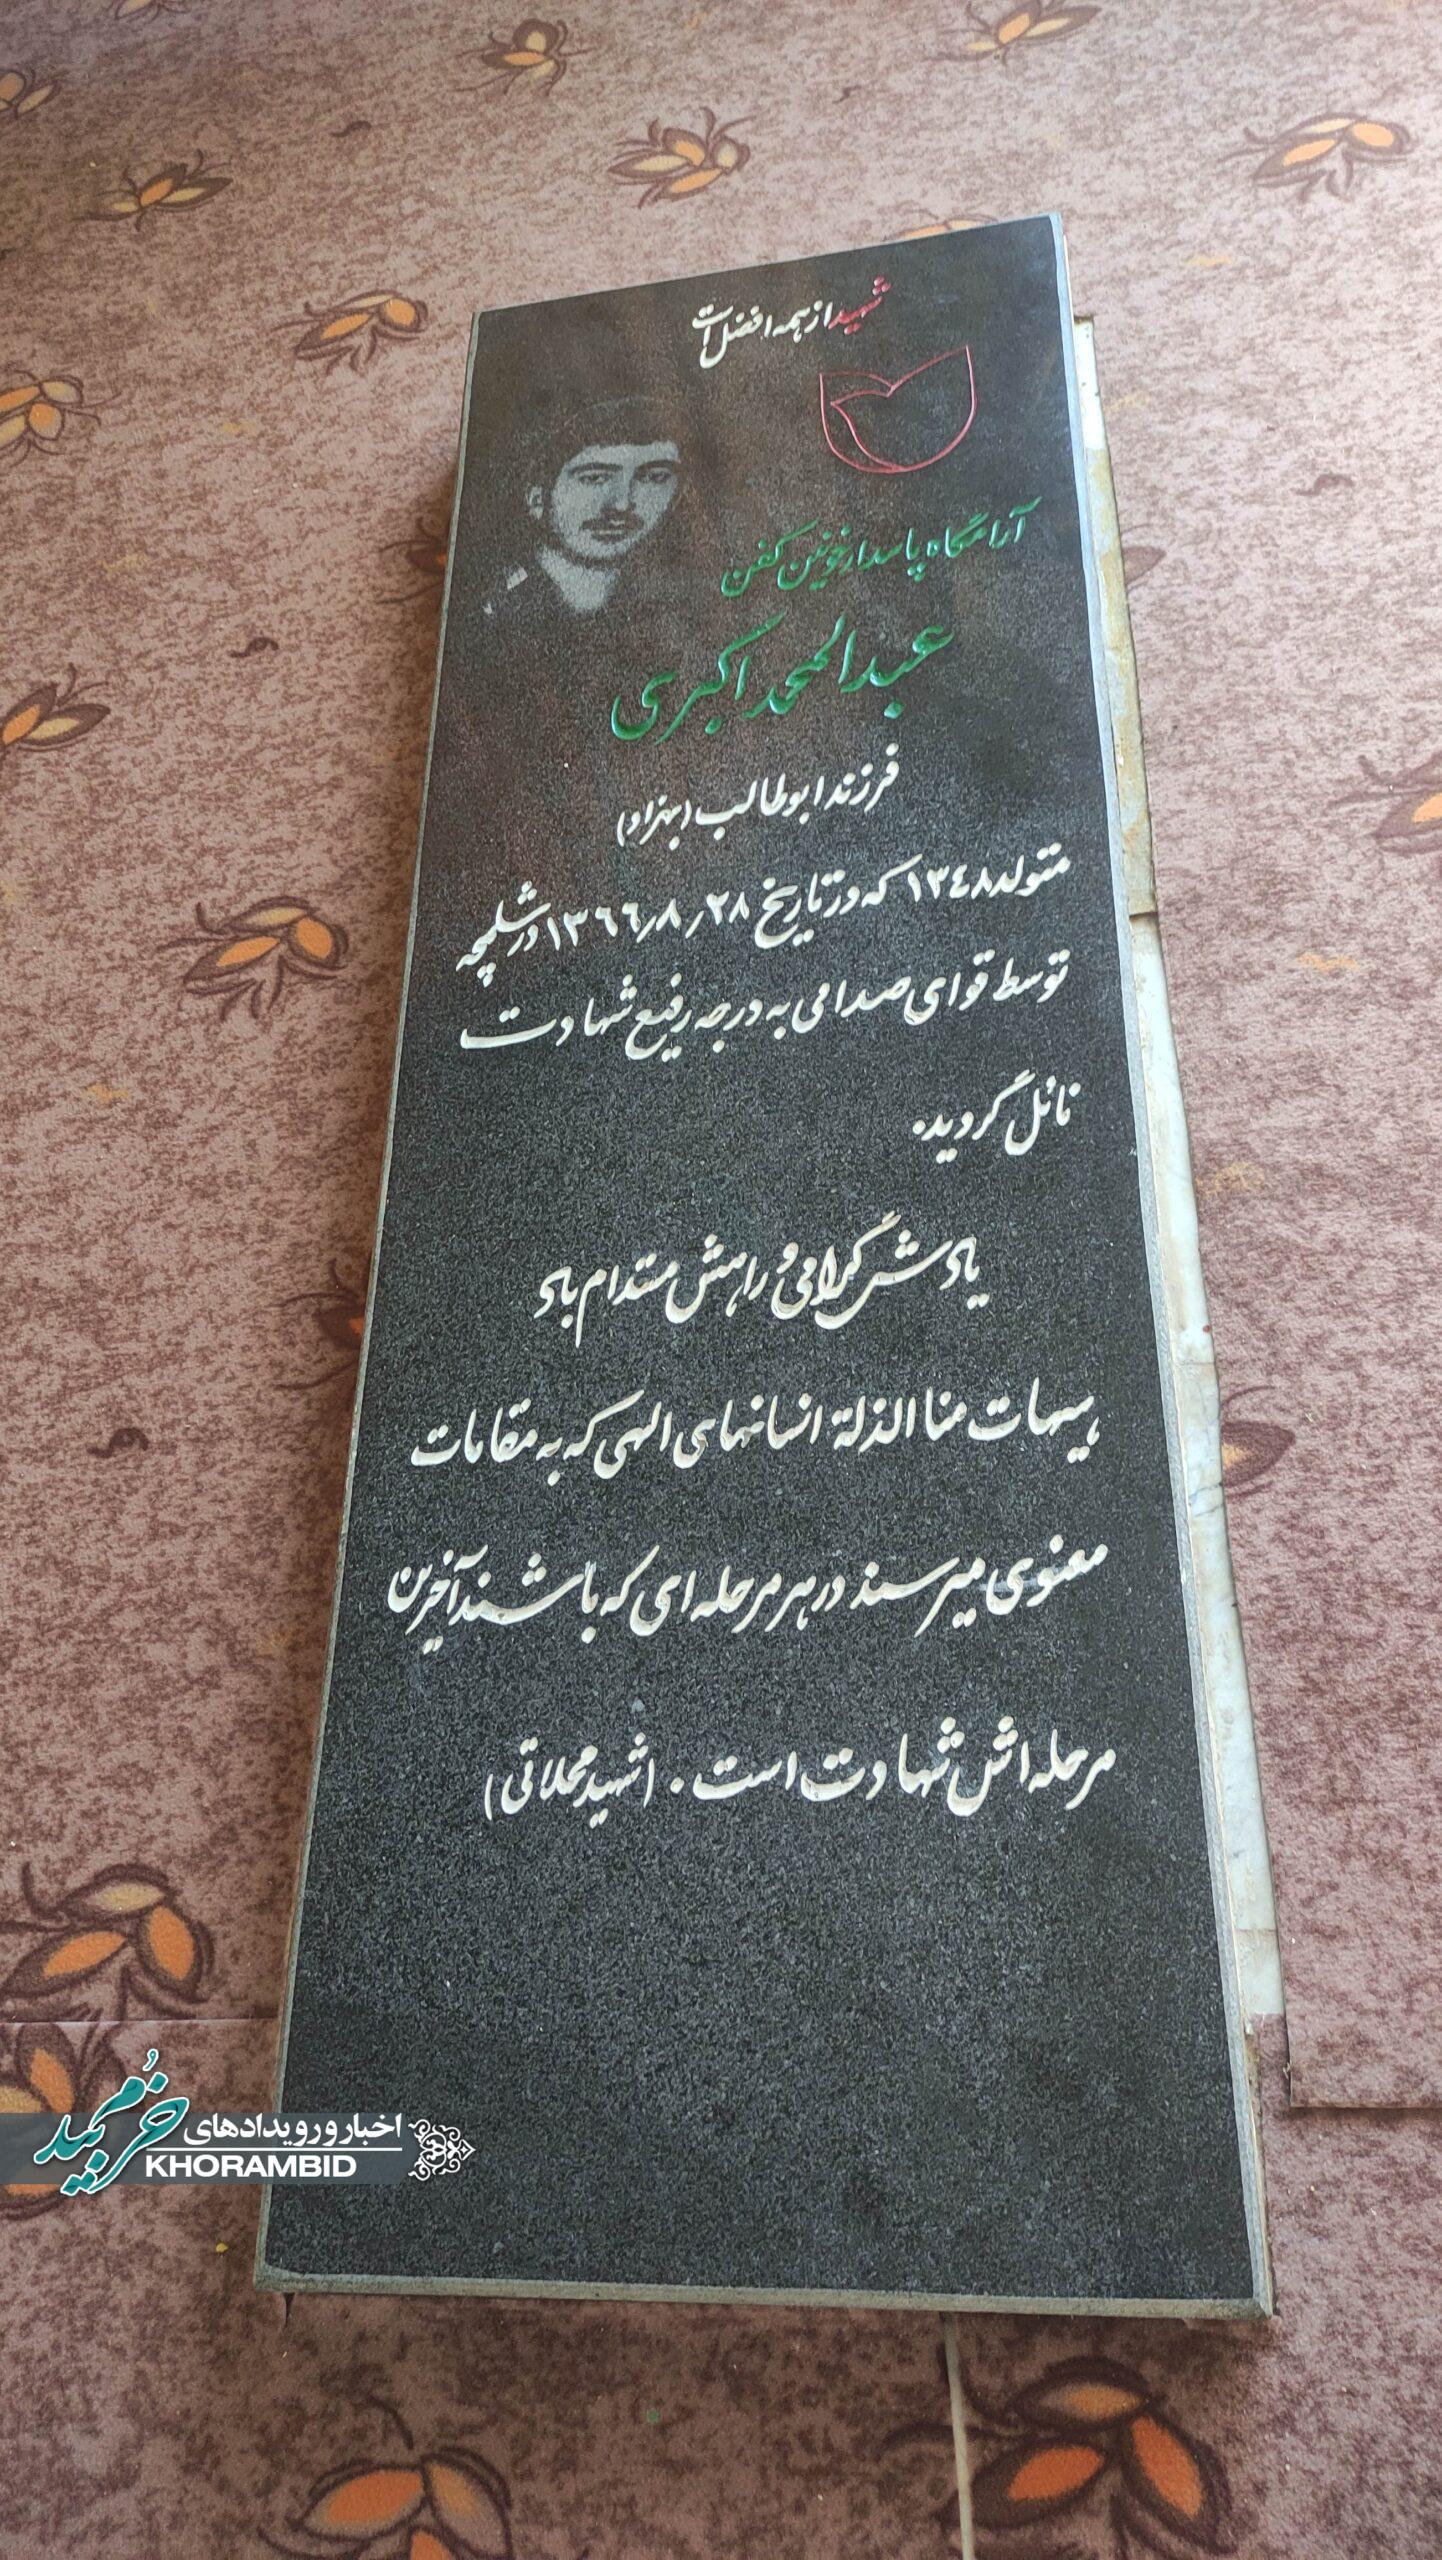 شهید از همه افضل است
آرامگاه پاسدار خونین کفن
عبدالمحمد اکبری
فرزند ابوطالب (بهزاد)
متولد ۱۳٤۸ که در تاریخ ۲۸٫۸٫۱۳٦٦ در شلمچه
توسط قوای صدامی به درجه رفیع شهادت
نائل گردید.
یادش گرامی و راهش مستدام باد
هیهات منا الذلة انسانهای الهی که به مقامات
معنوی میرسند در هر مرحله ای که باشند آخرین
مرحله اش شهادت است. (شهید محلاتی)
خُرمبید
اخبار و رویدادهای
KHORAMBID